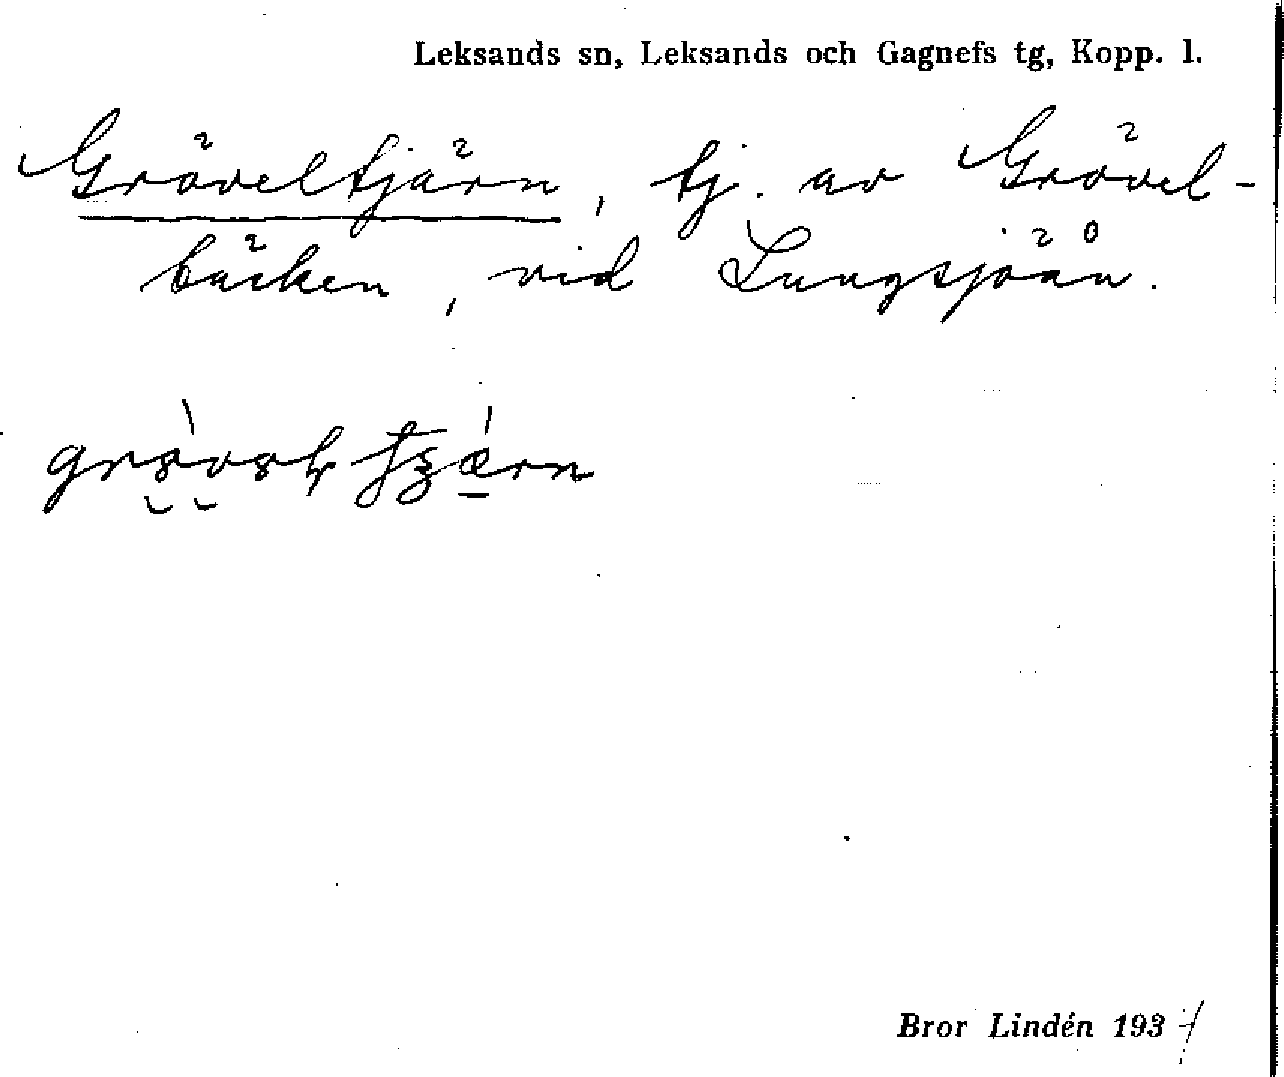 Leksands sn, Leksands och Gagnefs tg, Kopp. l.
Gröveltjärn, tj. av Grövel-
bäcken, vid Lungsjöån.
Bror Lindén 193